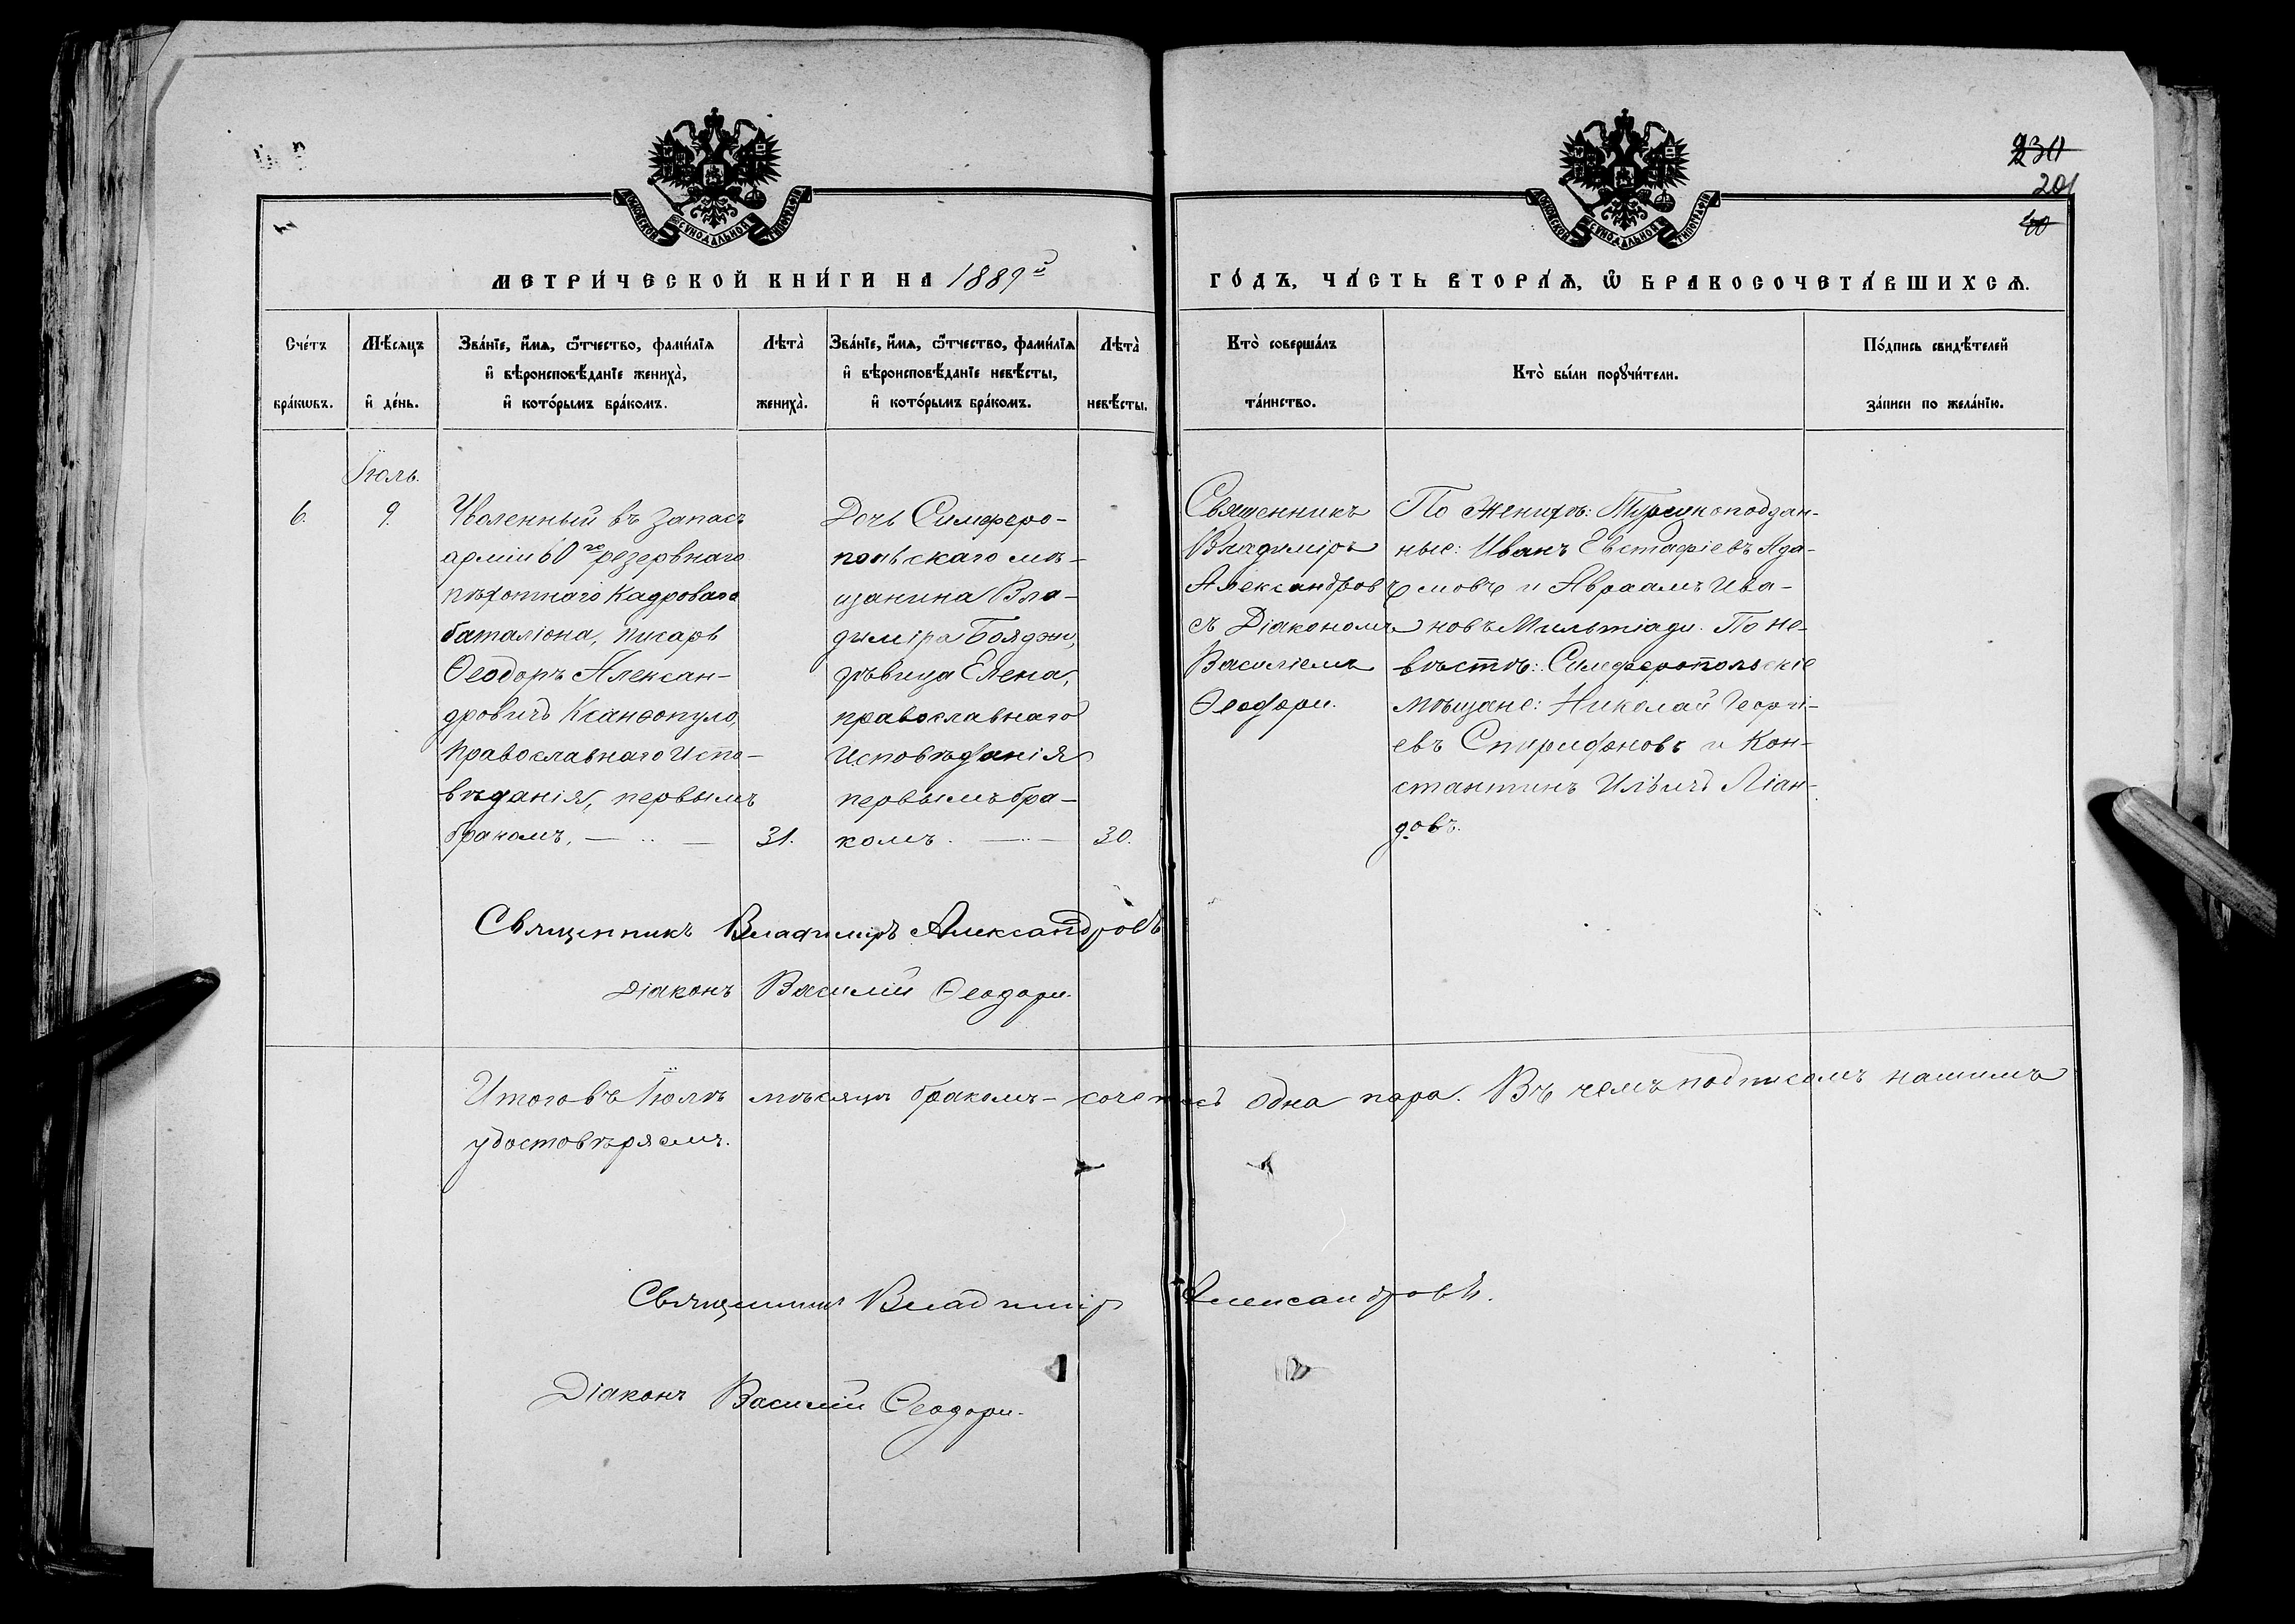 230
201
40
МОСКОВСКОЙ СѴНОДАЛЬНОЙ ТИПОГРАФІИ
МОСКОВСКОЙ СѴНОДАЛЬНОЙ ТИПОГРАФІИ
МЕТРИ́ЧЕСКОЙ КНИ́ГИ НА 1889й
ГО́ДЪ, ЧА́СТЬ ВТОРА́Ѧ, Ѽ БРАКОСОЧЕТА́ВШИХСѦ.
Сче́тъ бра́кѡвъ.
Мѣ́сяцъ и҆ де́нь.
Зва́нїе, и҆́мѧ, ѻ҆́тчество, фами́лїѧ и҆ вѣроисповѣ́данїе жениха̀, и҆ кото́рымъ бра́комъ.
Лѣта̀ жениха̀.
Зва́нїе, и҆́мѧ, ѻ҆́тчество, фами́лїѧ и҆ вѣроисповѣ́данїе невѣ́сты, и҆ кото́рымъ бра́комъ.
Лѣта̀ невѣ́сты.
Кто̀ соверша́лъ та́инство.
Кто̀ бы́ли порꙋчи́тели.
По́дпись свидѣ́телей за́писи по жела́нїю.
Іюль.
6.
9.
Уволенный въ запасъ
арміи 60го резервнаго
пѣхотнаго Кадроваго
баталіона, писарь
Ѳеодоръ Алексан-
дровичъ Ксанѳопуло,
православнаго Испо-
вѣданія, первымъ
бракомъ.
31.
Дочь Симферо-
польскаго мѣ-
щанина Вла-
диміра Бояджи,
дѣвица Елена,
православнаго
Исповѣданія
первымъ бра-
комъ.
30.
Священникъ
Владиміръ
Александровъ
съ Діакономъ
Василіемъ
Ѳеодори.
По Женихѣ: Турецкоподдан-
ные: Иванъ Евстафіевъ Ада-
мовъ и Авраамъ Ива-
новъ Мильтіади. По не-
вѣстѣ: Симферопольскіе
мѣщане: Николай Георгі-
евъ Спиридоновъ и Кон-
стантинъ Ильичъ Ліан-
довъ.
Священникъ Владиміръ Александровъ
Діаконъ Василій Ѳеодори.
Итого въ Іюлѣ мѣсяцѣ бракомъ-сочеталось одна пара. Въ чемъ подписомъ нашимъ
удостовѣряемъ.
Священникъ Владиміръ Александровъ.
Діаконъ Василій Ѳеодори.